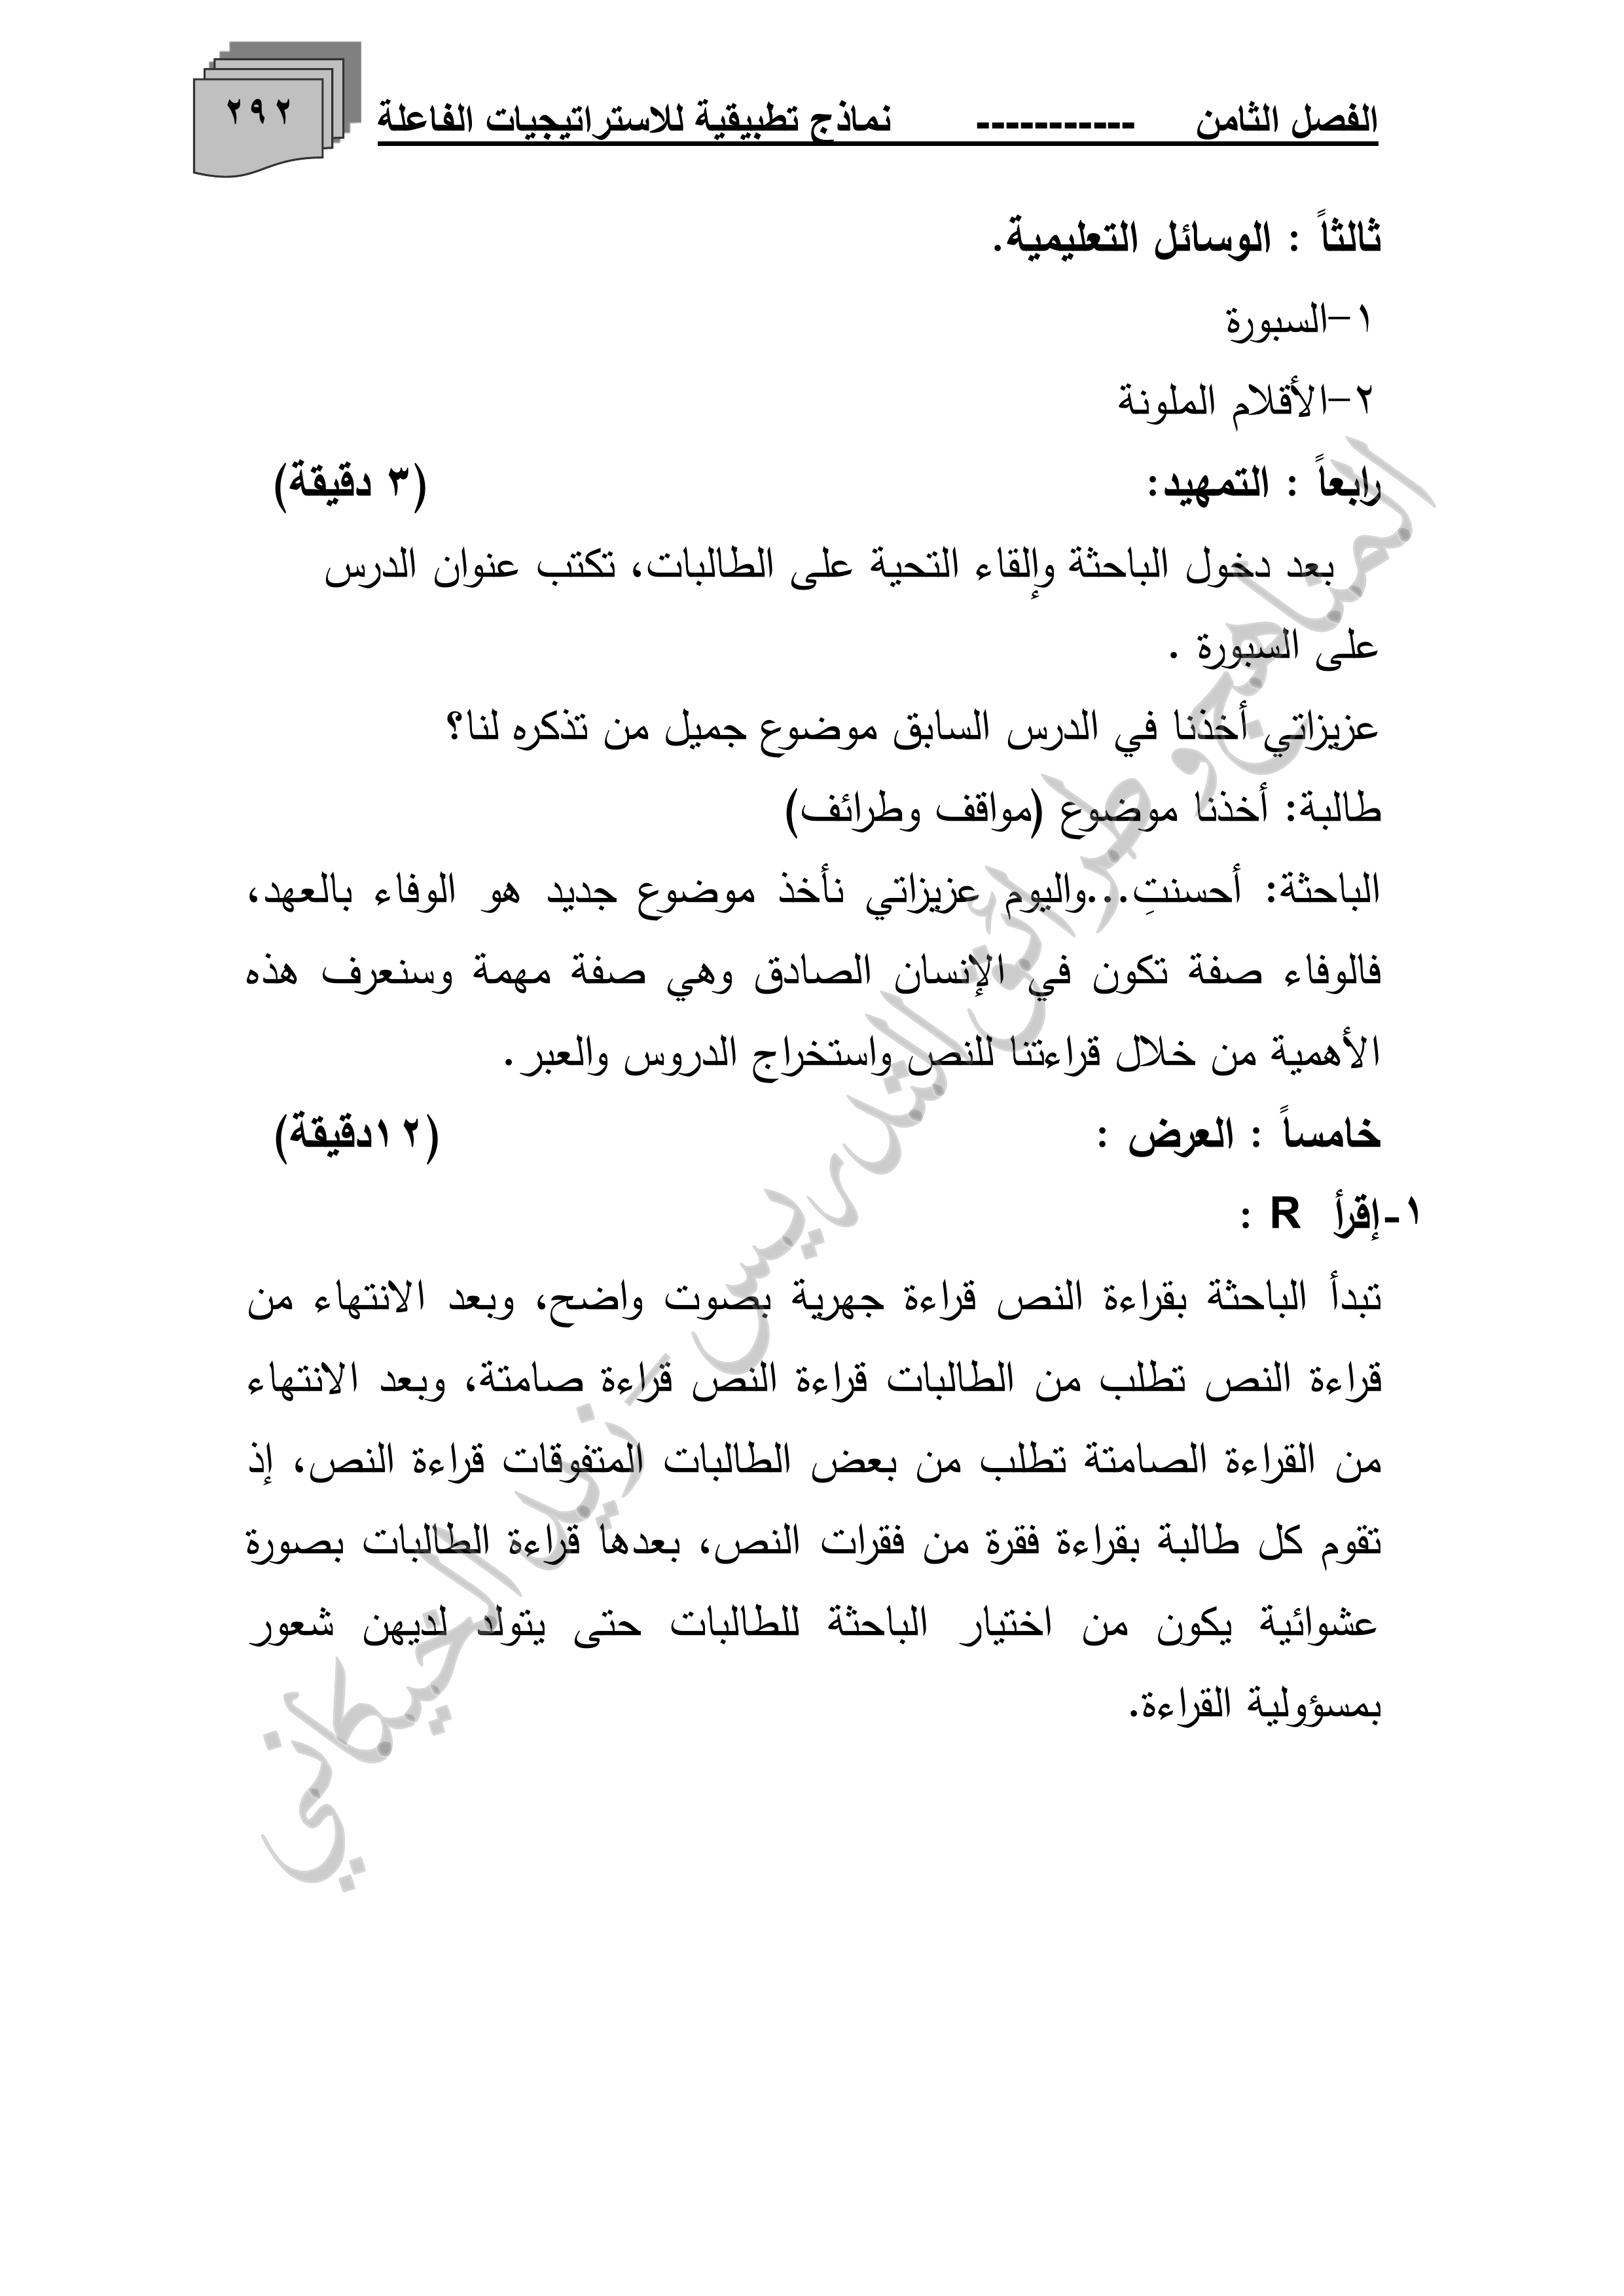 الفصل الثامن ----------- نماذج تطبيقية للاستراتيجيات الفاعلة
٢٩٢
ثالثاً : الوسائل التعليمية.
١-السبورة
٢-الأقلام الملونة
رابعاً : التمهيد: (٣ دقيقة)
بعد دخول الباحثة وإلقاء التحية على الطالبات، تكتب عنوان الدرس
على السبورة .
عزيزاتي أخذنا في الدرس السابق موضوع جميل من تذكره لنا؟
طالبة: أخذنا موضوع (مواقف وطرائف)
الباحثة: أحسنتِ...واليوم عزيزاتي نأخذ موضوع جديد هو الوفاء بالعهد،
فالوفاء صفة تكون في الإنسان الصادق وهي صفة مهمة وسنعرف هذه
الأهمية من خلال قراءتنا للنص واستخراج الدروس والعبر.
خامساً : العرض : (١٢دقيقة)
١-إقرأ R :
تبدأ الباحثة بقراءة النص قراءة جهرية بصوت واضح، وبعد الانتهاء من
قراءة النص تطلب من الطالبات قراءة النص قراءة صامتة، وبعد الانتهاء
من القراءة الصامتة تطلب من بعض الطالبات المتفوقات قراءة النص، إذ
تقوم كل طالبة بقراءة فقرة من فقرات النص، بعدها قراءة الطالبات بصورة
عشوائية يكون من اختيار الباحثة للطالبات حتى يتولد لديهن شعور
بمسؤولية القراءة.
المناهج وطرائق التدريس - زيد الخيكاني